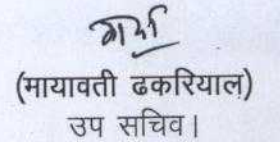 (मायावती ढकरियाल)
उप सचिव।